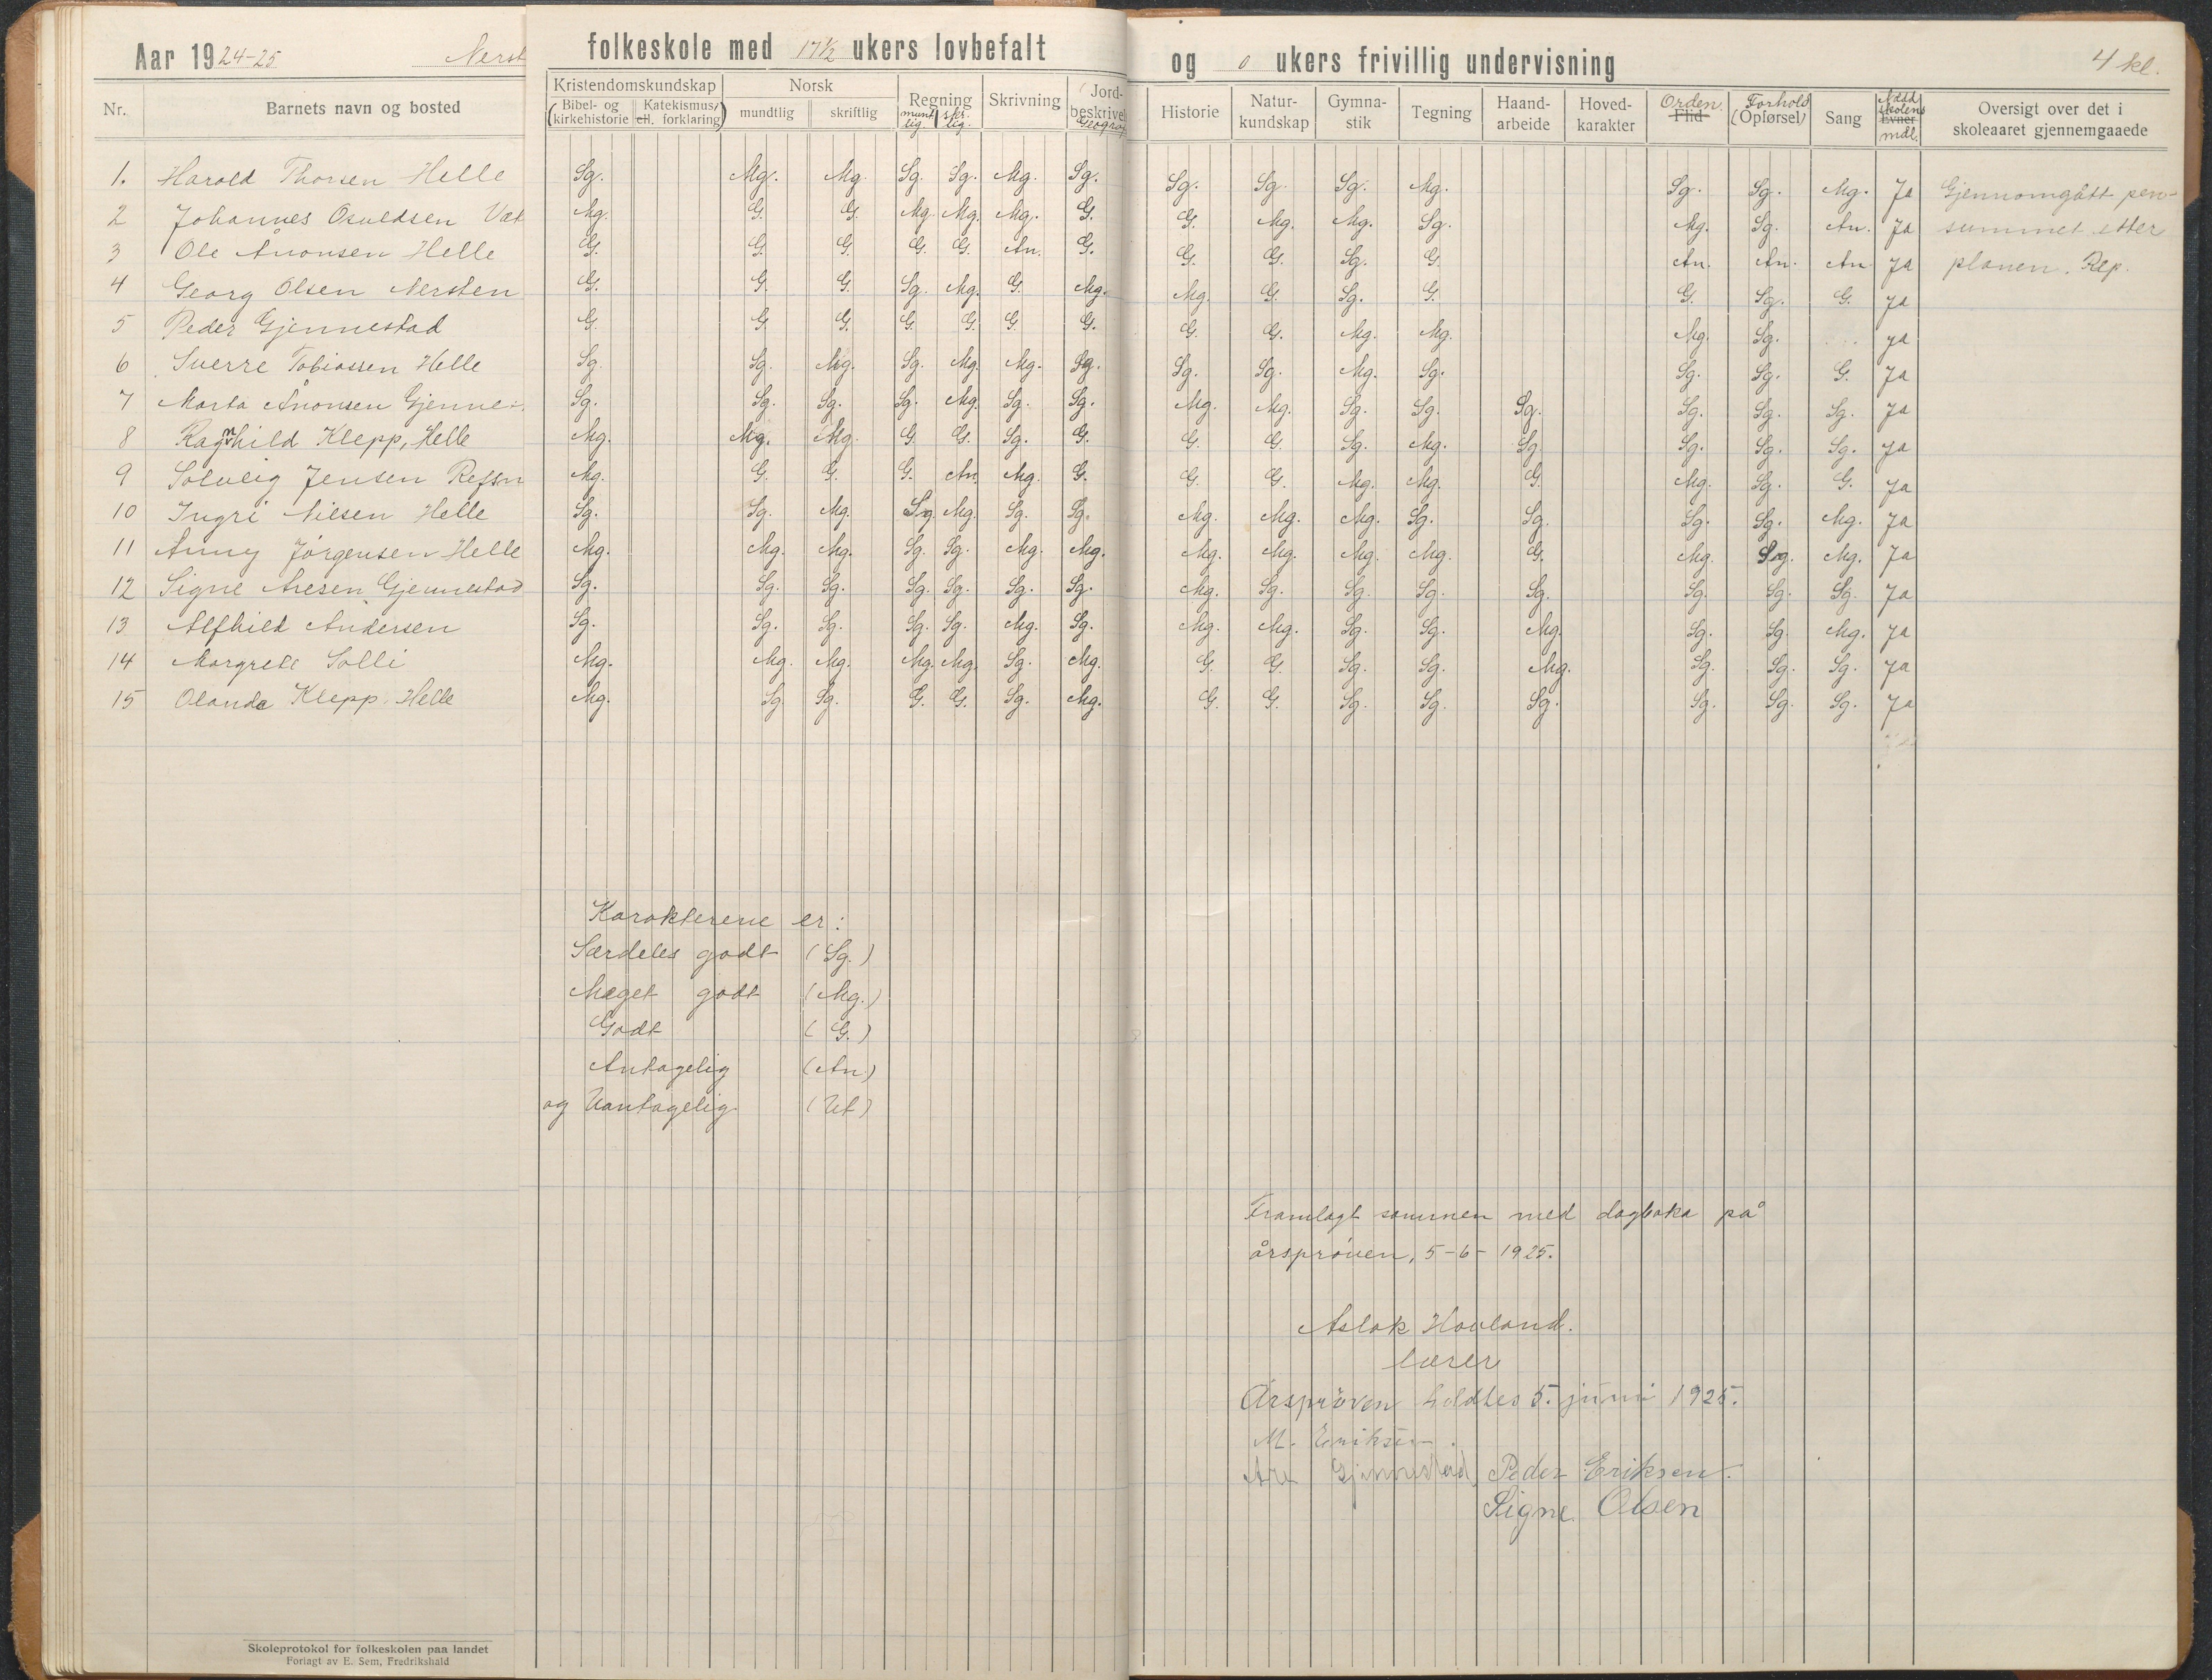 Aar 1924-25 Nerst folkeskole med 17 1/2 ukers lovbefalt og 0 ukers frivillig undervisning 4 kl.
Nr. Barnets navn og bosted Kristendomskundskap (Bibel- og kirkehistorie Katekismus, ell. forklaring) Norsk mundtlig skriftlig Regning munt lig. skr. lig. Skrivning Jord- beskrivel Geograf Historie Natur- kundskap Gymna- stik Tegning Haand- arbeide Hoved- karakter Orden. Flid Forhold (Opførsel) Sang Nådd skolens Evner mål. Oversigt over det i skoleaaret gjennemgaaede
1. Harald Thorsen Helle Sg. Mg. Mg. Sg. Sg. Mg. Sg. Sg. Sg. Sg. Mg. Sg. Sg. Mg. Ja Gjennomgått pen-
2 Johannes Osuldsen Vat Mg. G. G. Mg. Mg. Mg. G. G. Mg. Mg. Sg. Mg. Sg. An. Ja summet etter
3 Ole Ånonsen Helle G. G. G. G. G. An. G. G. G. Sg. G. An. An. An. Ja planen. Rep.
4 Georg Olsen Nersten G. G. G. Sg. Mg. G. Mg. Mg. G. Sg. G. G. Sg. G. Ja
5 Peder Gjennestad G. G. G. G. G. G. G. G. G. Mg. Mg. Mg. Sg. Ja
6 Sverre Tobiassen Helle Sg. Sg. Mg. Sg. Mg. Mg. Sg. Sg. Sg. Mg. Sg. Sg. Sg. G. Ja
7 Marta Ånonsen Gjenne Sg. Sg. Sg. Sg. Mg. Sg. Sg. Mg. Mg. Sg. Sg. Sg. Sg. Sg. Sg. Ja
8 Ragnhild Klepp, Helle Mg. Mg. Mg. G. G. Sg. G. G. G. Sg. Mg. Sg. Sg. Sg. Sg. Ja
9 Solveig Jensen Refsn Mg. G. G. G. An. Mg. G. G. G. Mg. Mg. G. Mg. Sg. G. Ja
10 Ingri Nilsen Helle Sg. Sg. Mg. Sg. Mg. Sg. Sg. Mg. Mg. Mg. Sg. Sg. Sg. Sg. Mg. Ja
11 Anny Jørgensen Helle Mg. Mg. Mg. Sg. Sg. Mg. Mg. Mg. Mg. Mg. Mg. G. Mg. Sg. Mg. Ja
12 Signe Aresen Gjennestad Sg. Sg. Sg. Sg. Sg. Sg. Sg. Mg. Sg. Sg. Sg. Sg. Sg. Sg. Sg. Ja
13 Alfhild Andersen Sg. Sg. Sg. Sg. Sg. Mg. Sg. Mg. Mg. Sg. Sg. Mg. Sg. Sg. Mg. Ja
14 Margrete Solli Mg. Mg. Mg. Mg. Mg. Sg. Mg. G. G. Sg. Sg. Mg. Sg. Sg. Sg. Ja
15 Olanda Klepp. Helle Mg. Sg. Sg. G. G. Sg. Mg. G. G. Sg. Sg. Sg. Sg. Sg. Sg. Ja
Karakterene er:
Særdeles godt (Sg.)
Meget godt (Mg.)
Godt (G.)
Antagelig (An)
og Uantagelig (Ut)
Framlagt sammen med dagboka på
årsprøven, 5-6-1925.
Aslak Hovland.
lærer
Årsprøven holdtes 5. juni 1925.
M. Eriksen.
Are Gjennestad, Peder Eriksen.
Signe Olsen
Skoleprotokol for folkeskolen paa landet
Forlagt av E. Sem, Fredrikshald